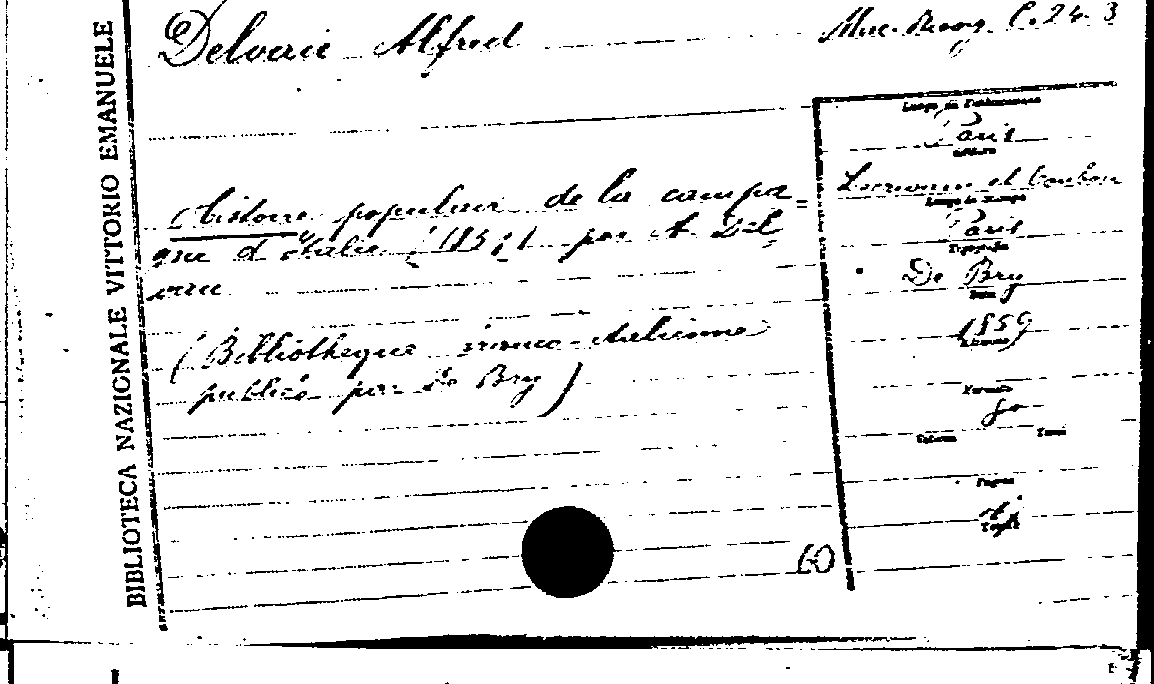 BIBLIOTECA NAZIONALE VITTORIO EMANUELE
Delvau Alfred
Misc. Risorg. C. 24. 3
Luogo di Pubblicazione
Paris
Editore
et Coulon
Luogo di Stampa
Paris
Tipografia
De Bry
Data
1859
Formato
8o
Volume Tomo
Pagine
Histoire populaire de la campa=
gne d'Italie (1859) par A. Del
vau
(Bibliothèque franco-italienne
publiée par De Bry)
60